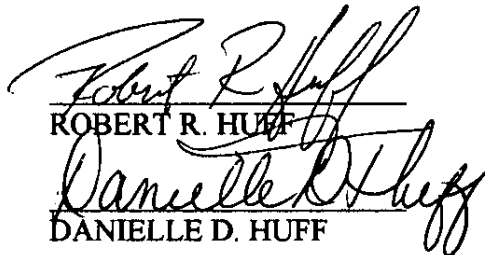 Robert R Huff
ROBERT R. HUFF
Danielle D Huff
DANIELLE D. HUFF